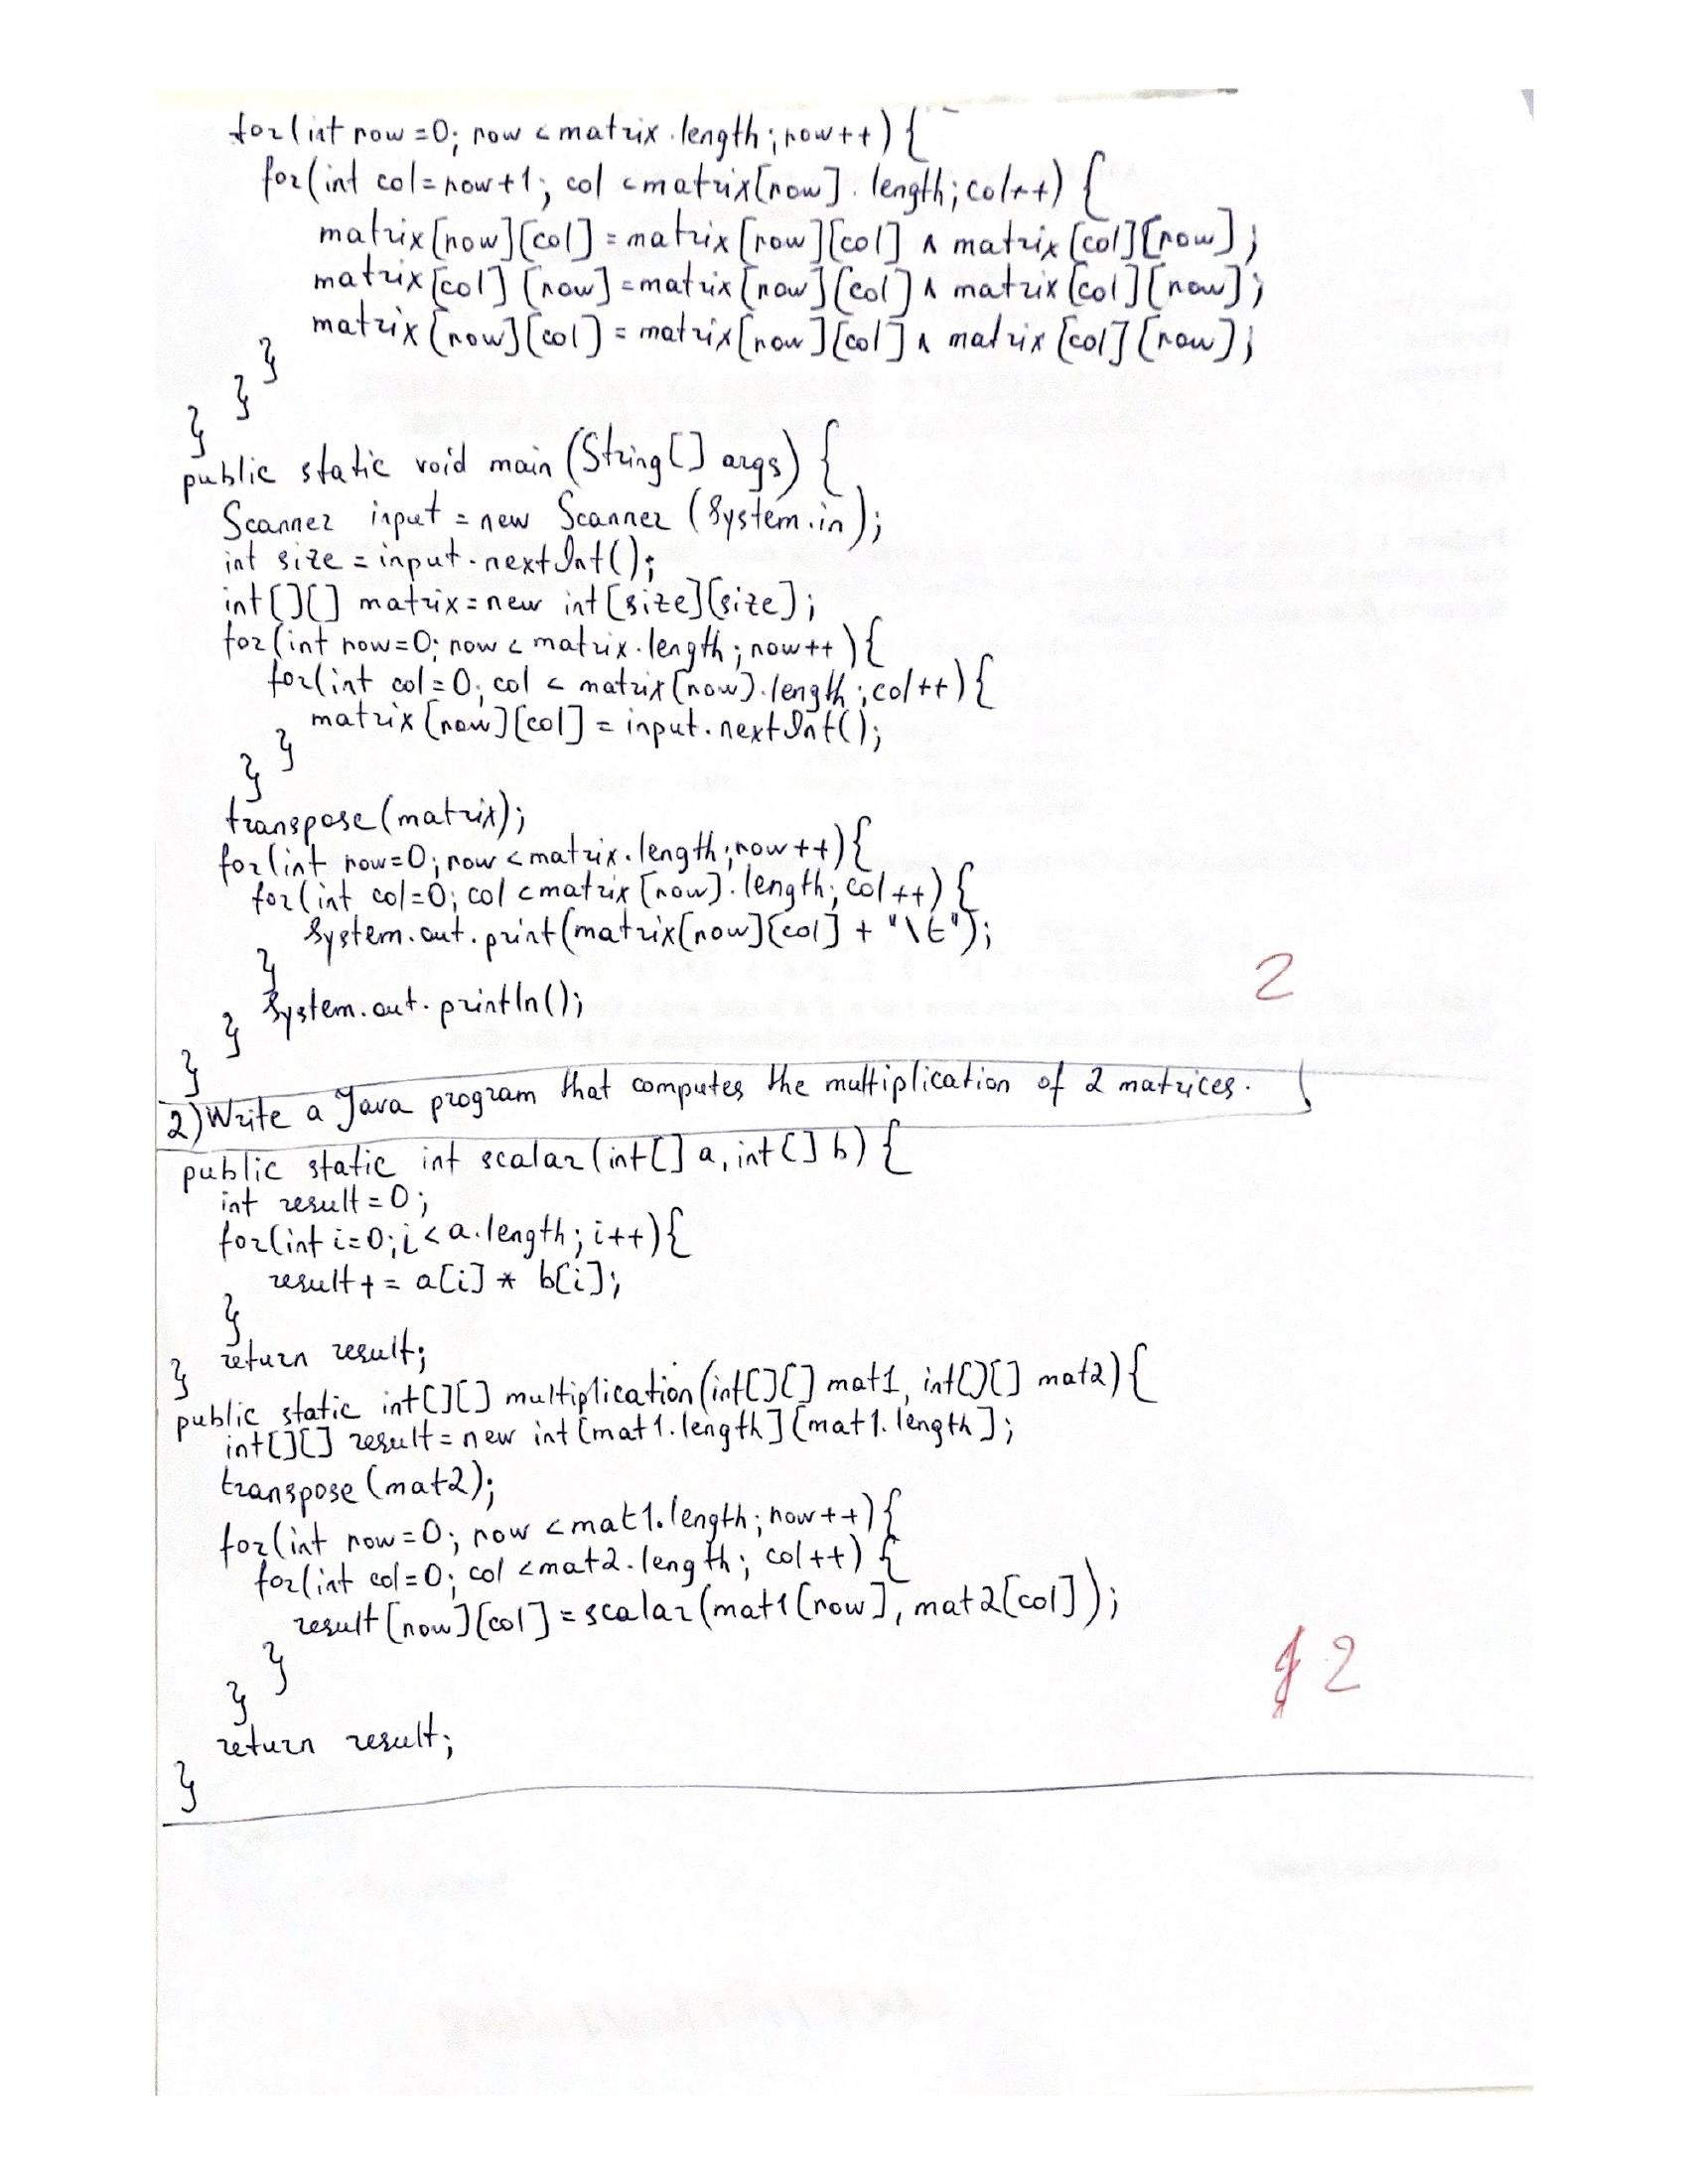 for(int row=0; row < matrix.length; row++) {
for(int col=row+1; col < matrix[row].length; col++) {
matrix[row][col] = matrix[row][col] ^ matrix[col][row];
matrix[col][row] = matrix[row][col] ^ matrix[col][row];
matrix[row][col] = matrix[row][col] ^ matrix[col][row];
}
}
}
public static void main (String[] args) {
Scanner input = new Scanner (System.in);
int size = input.nextInt();
int[][] matrix = new int[size][size];
for(int row=0; row < matrix.length; row++){
for(int col=0; col < matrix[row].length; col++){
matrix[row][col] = input.nextInt();
}
}
transpose(matrix);
for(int row=0; row < matrix.length; row++){
for(int col=0; col < matrix[row].length; col++) {
System.out.print(matrix[row][col] + "\t");
}
2
System.out.println();
}
}
2) Write a Java program that computes the multiplication of 2 matrices.
public static int scalar(int[] a, int[] b) {
int result = 0;
for(int i=0; i < a.length; i++){
result += a[i] * b[i];
}
return result;
}
public static int[][] multiplication(int[][] mat1, int[][] mat2){
int[][] result = new int[mat1.length][mat1.length];
transpose(mat2);
for(int row=0; row < mat1.length; row++){
for(int col=0; col < mat2.length; col++) {
result[row][col] = scalar(mat1[row], mat2[col]);
}
2
}
return result;
}